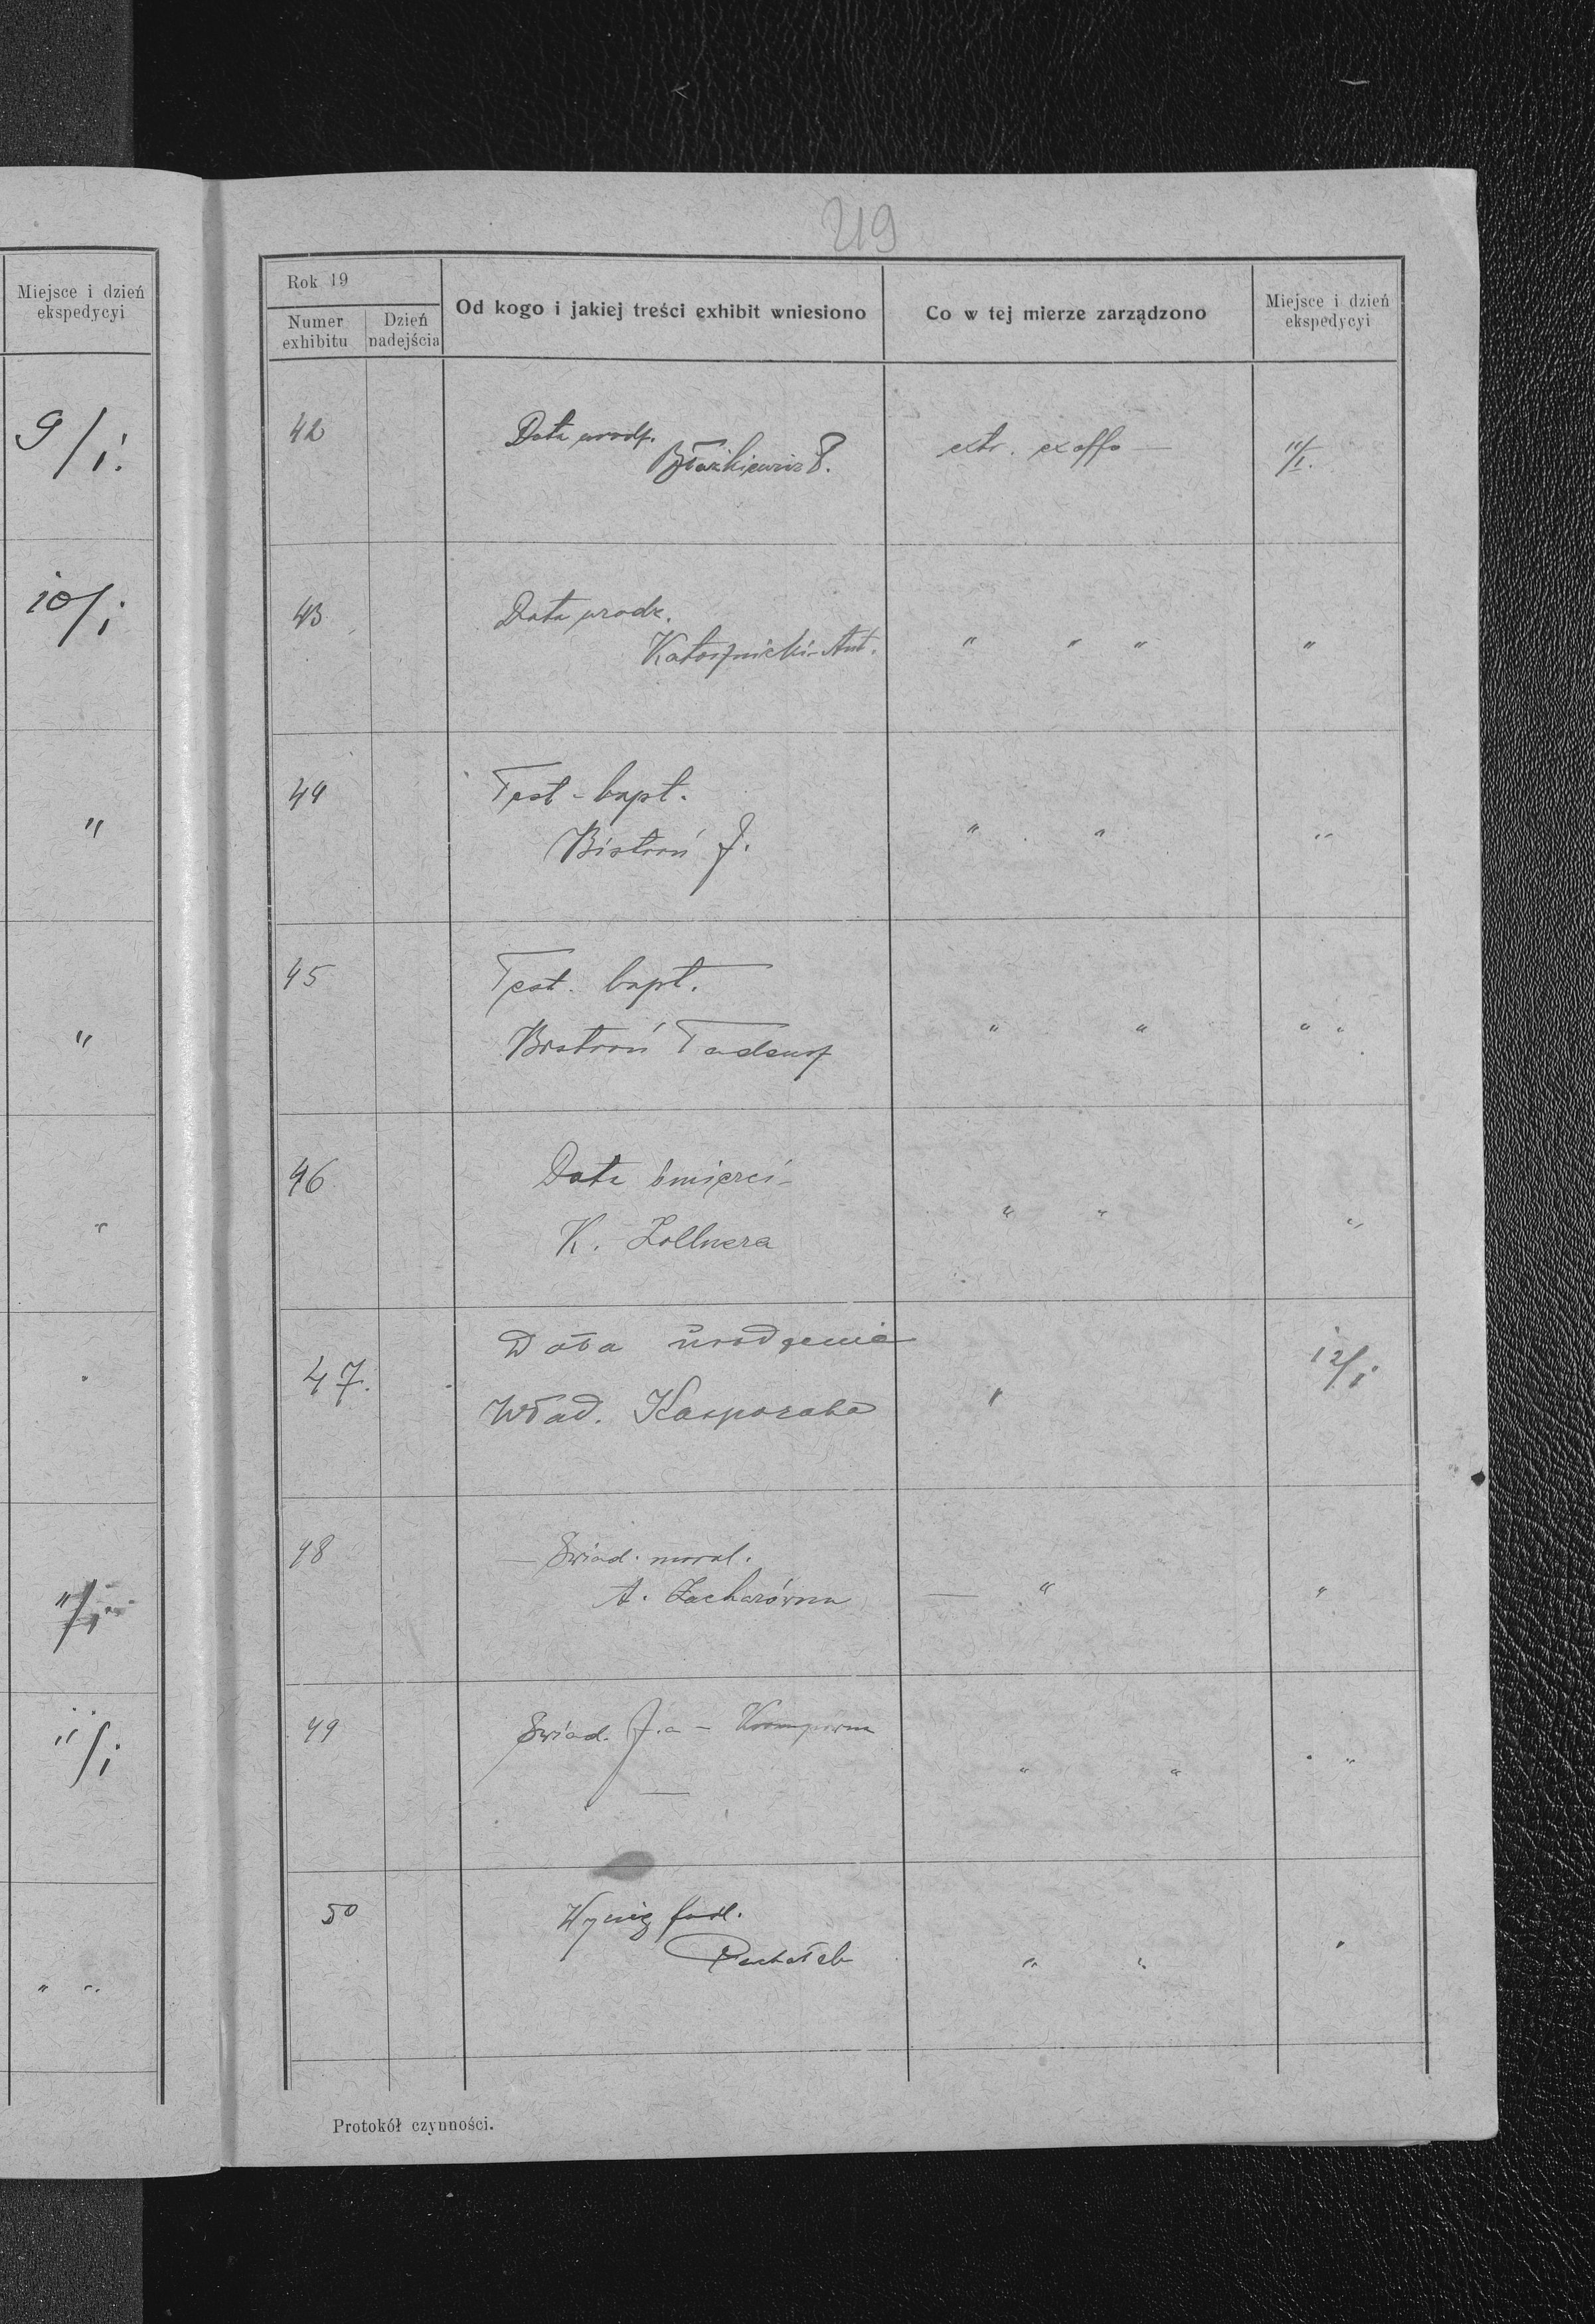 219
Miejsce i dzień
ekspedycyi
9/I.
10/I
"
"
"
"
11/I
" "
Rok 19
Numer
exhibitu
Dzień
nadejścia
Od kogo i jakiej treści exhibit wniesiono
Co w tej mierze zarządzono
Miejsce i dzień
ekspedycyi
42
Data urodz.
extr. ex offo —
11/I.
43
Data urodz.
Ant.
" " "
"
44
Test. bapt.
Bistroń J.
" "
"
45
Test. bapt.
Bistroń Tadeusz
" "
" "
46
Data śmierci
K. Zollnera
" "
"
47.
Data urodzenia
Wład. Kasporaka
"
12/I
48
— Świad. moral.
A. Zacharówna
— "
"
49
Świad.
" "
" "
50
" "
"
Protokół czynności.